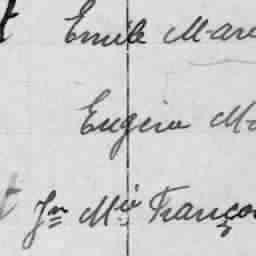 t Emile Mar
Eugène Ma
t Jn Mie Franço